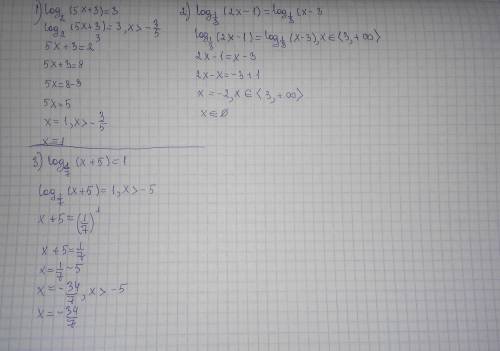 1) log₂(5x+3)=3
log₂(5x+3)=3, x>-3/5
5x+3=2³
5x+3=8
5x=8-3
5x=5
x=1, x>-3/5
x=1
2) log_{1/3}(2x-1)=log_{1/3}(x-3
log_{1/3}(2x-1)=log_{1/3}(x-3), x∈⟨3,+∞⟩
2x-1=x-3
2x-x=-3+1
x=-2, x∈⟨3,+∞⟩
x∈∅
3) log_{1/7}(x+5)=1
log_{1/7}(x+5)=1, x>-5
x+5=(1/7)¹
x+5=1/7
x=1/7-5
x=-34/7, x>-5
x=-34/7